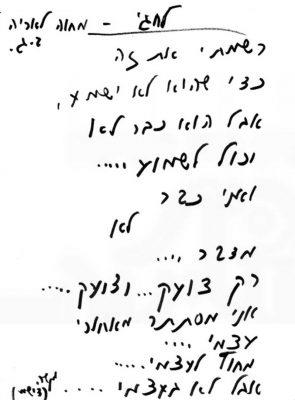 לחגי - מחווה לאריה
ז.ג.
רשמתי את זה
כדי שהוא לא ישמע,
אבל הוא כבר לא
יכול לשמוע .....
ואני כבר
לא
מדבר ....
רק צועק... וצועק.....
אני מסתתר מאחורי
עצמי ....
מחוץ לעצמי.....
אבל לא בעצמי .....